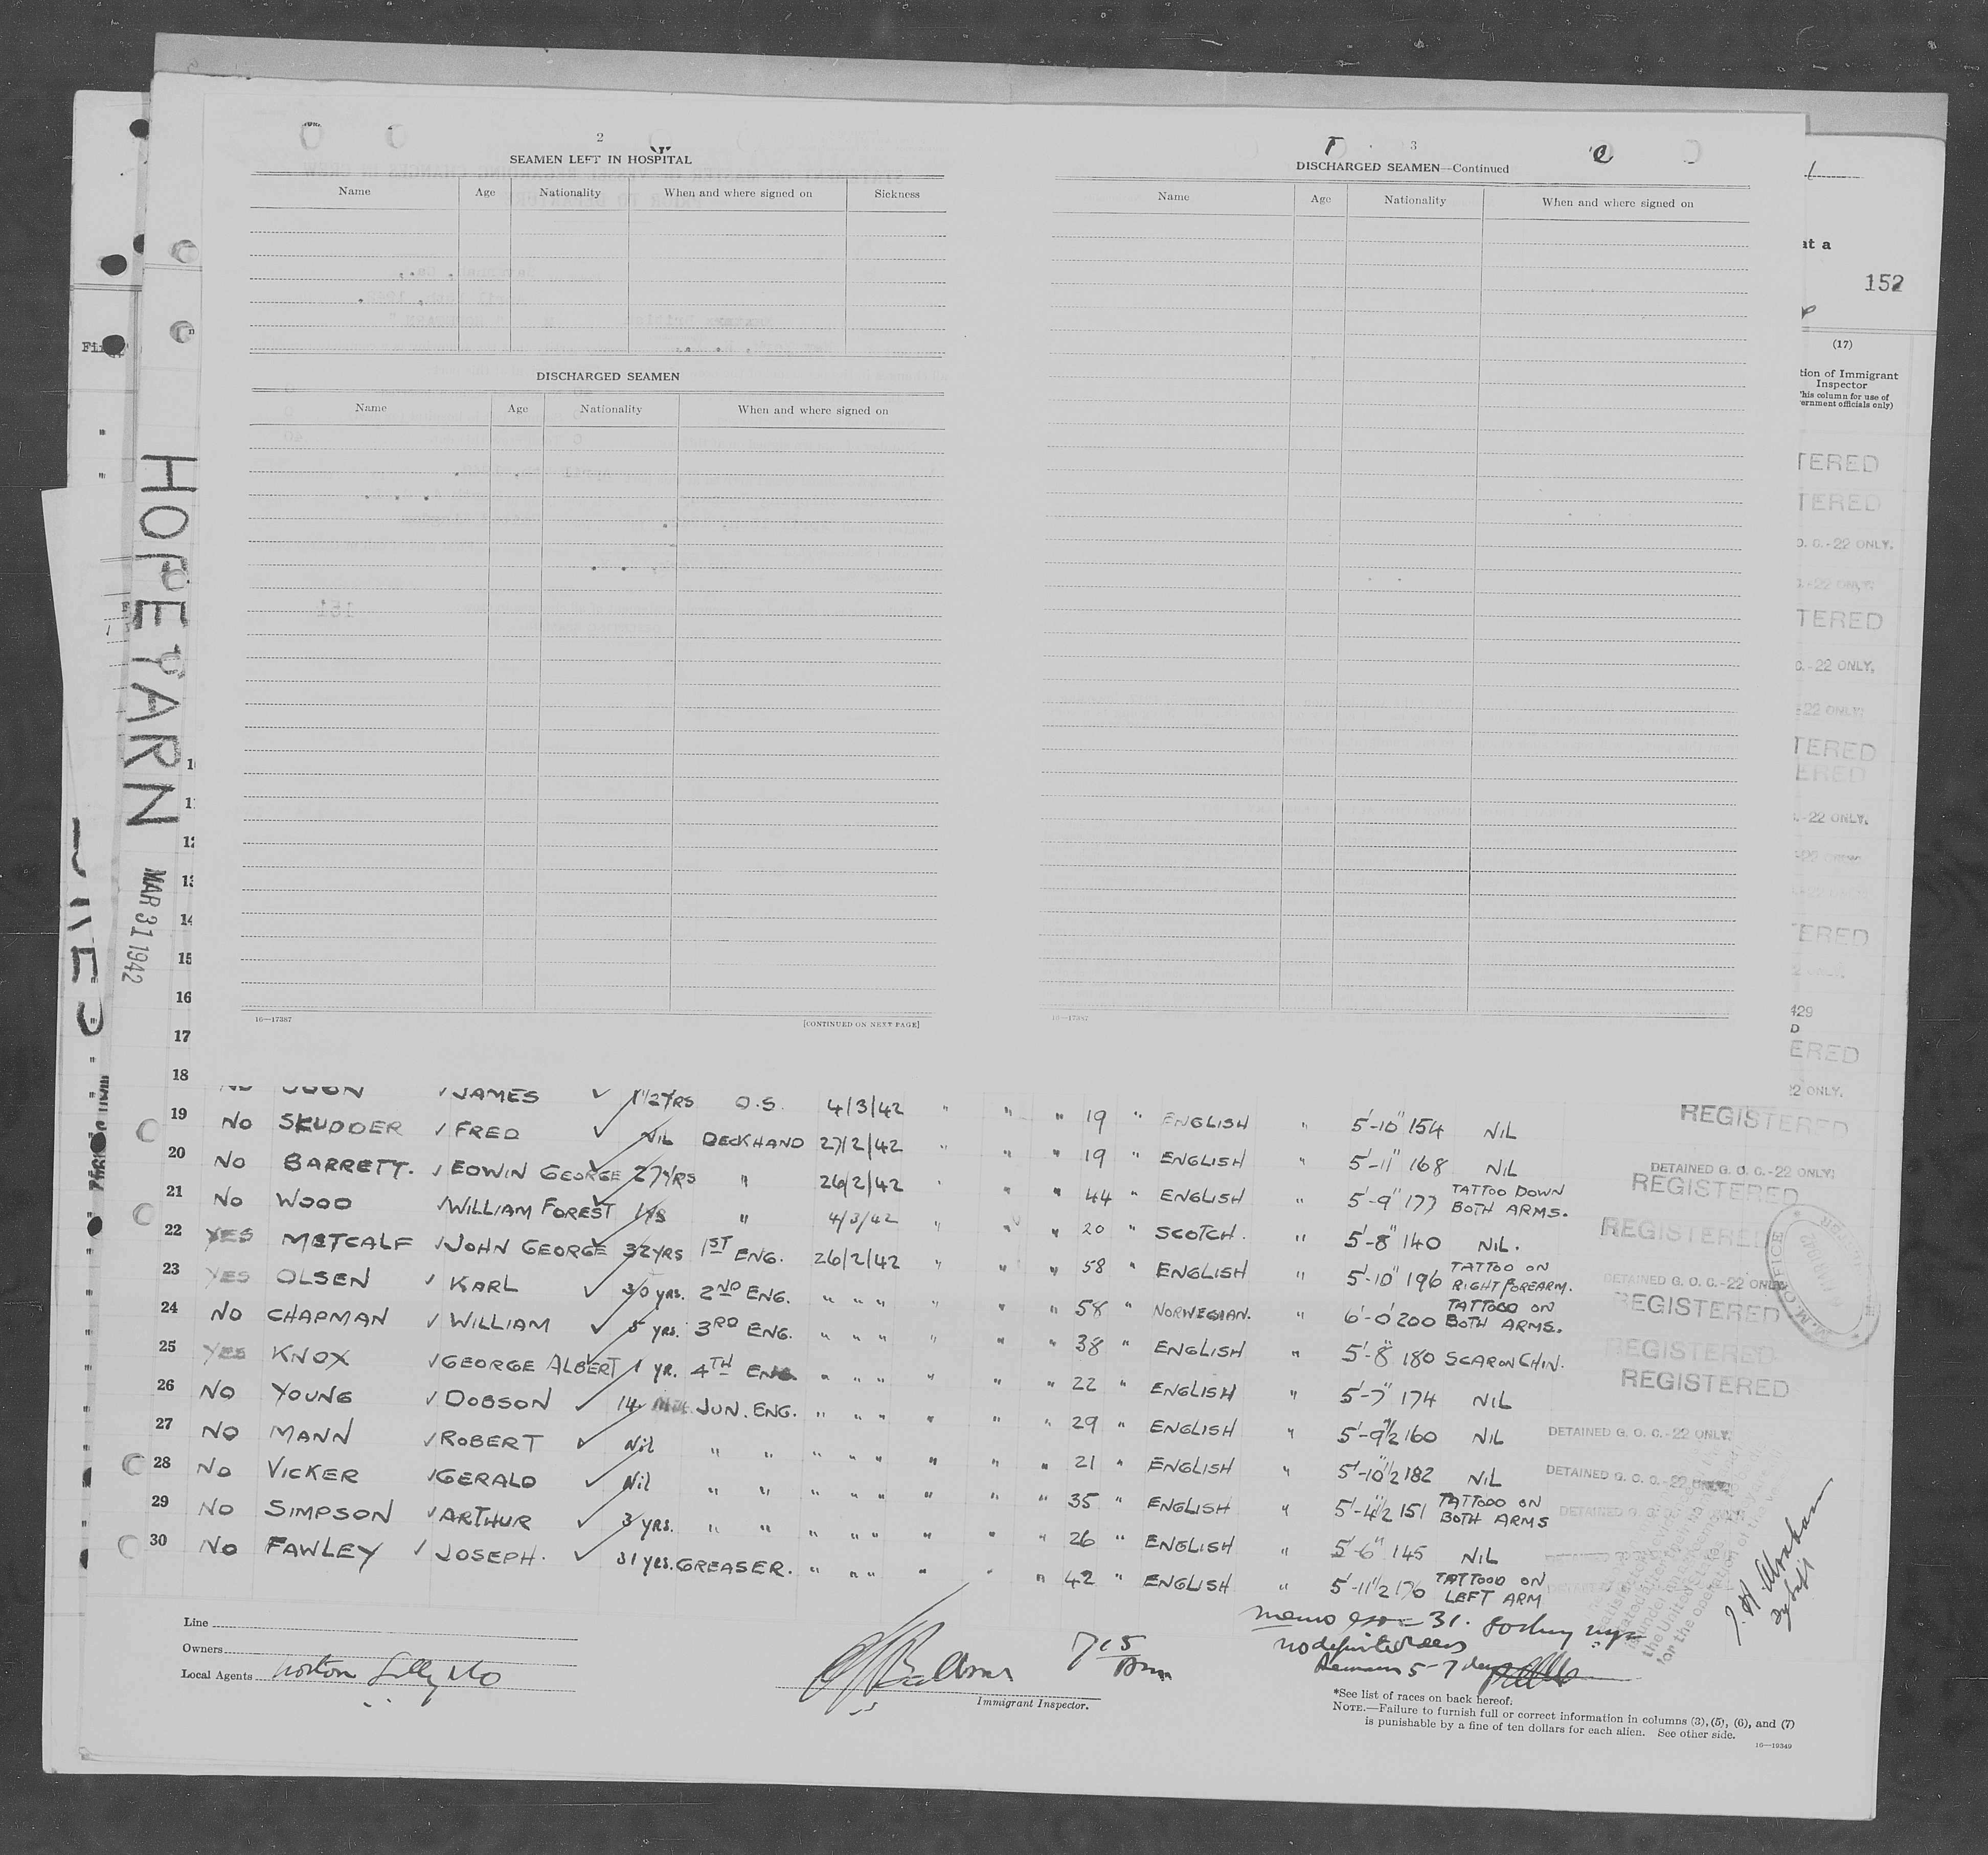 2
SEAMEN LEFT IN HOSPITAL
Name Age Nationality When and where signed on Sickness
DISCHARGED SEAMEN
Name Age Nationality When and where signed on
16—17387 [CONTINUED ON NEXT PAGE]
3
DISCHARGED SEAMEN—Continued
Name Age Nationality When and where signed on
16—17387
at a
152
(17)
tion of Immigrant
Inspector
this column for use of
ernment officials only)
TERED
TERED
O. C.-22 ONLY.
.-22 ONLY.
TERED
C.-22 ONLY.
-22 ONLY.
TERED
ERED
.-22 ONLY.
ERED
429
D
ERED
22 ONLY.
HOPEYARN
MAR 31 1942
11
12
13
14
15
16
17
18 JAMES 1 1/2 YRS O.S. 4/3/42 " " " 19 " ENGLISH " 5'-10" 154 NIL REGISTERED
19 NO SKUDDER FRED NIL DECKHAND 27/2/42 " " " 19 " ENGLISH " 5'-11" 168 NIL DETAINED G. O. C.-22 ONLY.
20 NO BARRETT. EDWIN GEORGE 27YRS " 26/2/42 " " " 44 " ENGLISH " 5'-9" 177 TATTOO DOWN BOTH ARMS. REGISTERED
21 NO WOOD WILLIAM FOREST " 4/3/42 " " 20 " SCOTCH. " 5'-8" 140 NIL. REGISTERED
22 YES METCALF JOHN GEORGE 32YRS 1ST ENG. 26/2/42 " " " 58 " ENGLISH " 5'-10" 196 TATTOO ON RIGHT FOREARM. DETAINED G. O. C.-22 ONLY
23 YES OLSEN KARL 30 YRS. 2ND ENG. " " " " " " 58 " NORWEGIAN. " 6'-0" 200 TATTOOD ON BOTH ARMS. REGISTERED
24 NO CHAPMAN WILLIAM 5 YRS. 3RD ENG. " " " " " " 38 " ENGLISH " 5'-8" 180 SCAR ON CHIN. REGISTERED
25 YES KNOX GEORGE ALBERT 1 YR. 4TH ENG " " " " " " 22 " ENGLISH " 5'-7" 174 NIL REGISTERED
26 NO YOUNG DOBSON 14 JUN. ENG. " " " " " " 29 " ENGLISH " 5'-9 1/2" 160 NIL DETAINED G. O. C.-22 ONLY.
27 NO MANN ROBERT Nil " " " " " " " " 21 " ENGLISH " 5'-10 1/2" 182 NIL DETAINED G. O. C.-22 ONLY
28 NO VICKER GERALD Nil " " " " " " " " 35 " ENGLISH " 5'-4 1/2" 151 TATTOOD ON BOTH ARMS DETAINED G. O. C.
29 NO SIMPSON ARTHUR 3 YRS. " " " " " " " " 26 " ENGLISH " 5'-6" 145 NIL
30 NO FAWLEY JOSEPH. 31 YRS. GREASER. " " " " " " 42 " ENGLISH " 5'-11 1/2" 176 TATTOOD ON LEFT ARM
Line
Owners
Local Agents Norton Lilly & Co
Immigrant Inspector.
no definite
Remain 5-7 days
*See list of races on back hereof.
NOTE.—Failure to furnish full or correct information in columns (3), (5), (6), and (7)
is punishable by a fine of ten dollars for each alien. See other side.
16—19349